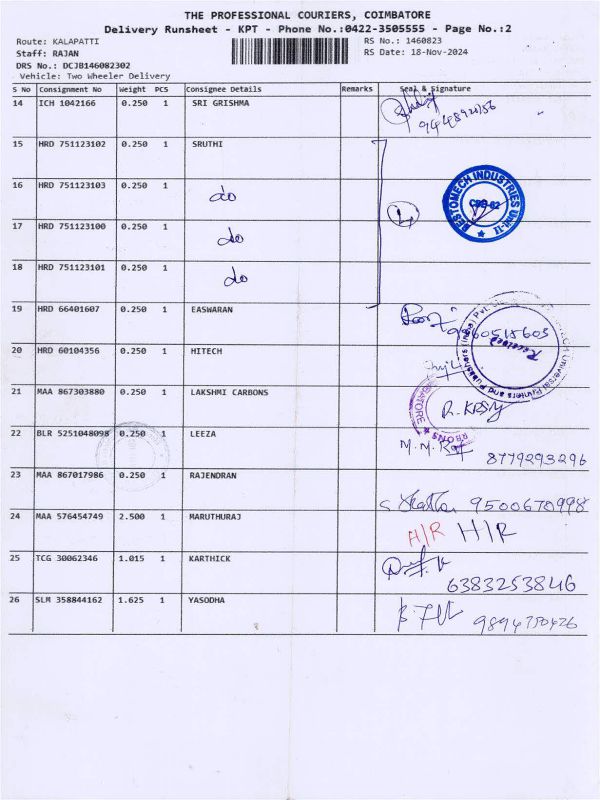 THE PROFESSIONAL COURIERS, COIMBATORE
Delivery Runsheet - KPT - Phone No.:0422-3505555 - Page No.:2
Route: KALAPATTI RS No.: 1460823
Staff: RAJAN RS Date: 18-Nov-2024
DRS No.: DCJB146082302
Vehicle: Two Wheeler Delivery
S No Consignment No Weight PCS Consignee Details Remarks Seal & Signature
14 ICH 1042166 0.250 1 SRI GRISHMA
15 HRD 751123102 0.250 1 SRUTHI
16 HRD 751123103 0.250 1 do
RESTOMECH INDUSTRIES UNIT-II
17 HRD 751123100 0.250 1 do
18 HRD 751123101 0.250 1 do
19 HRD 66401607 0.250 1 EASWARAN
20 HRD 60104356 0.250 1 HITECH
Received
21 MAA 867303880 0.250 1 LAKSHMI CARBONS
22 BLR 5251048098 0.250 1 LEEZA
8779293296
23 MAA 867017986 0.250 1 RAJENDRAN
9500670998
24 MAA 576454749 2.500 1 MARUTHURAJ H/R H/R
25 TCG 30062346 1.015 1 KARTHICK
6383253846
26 SLM 358844162 1.625 1 YASODHA